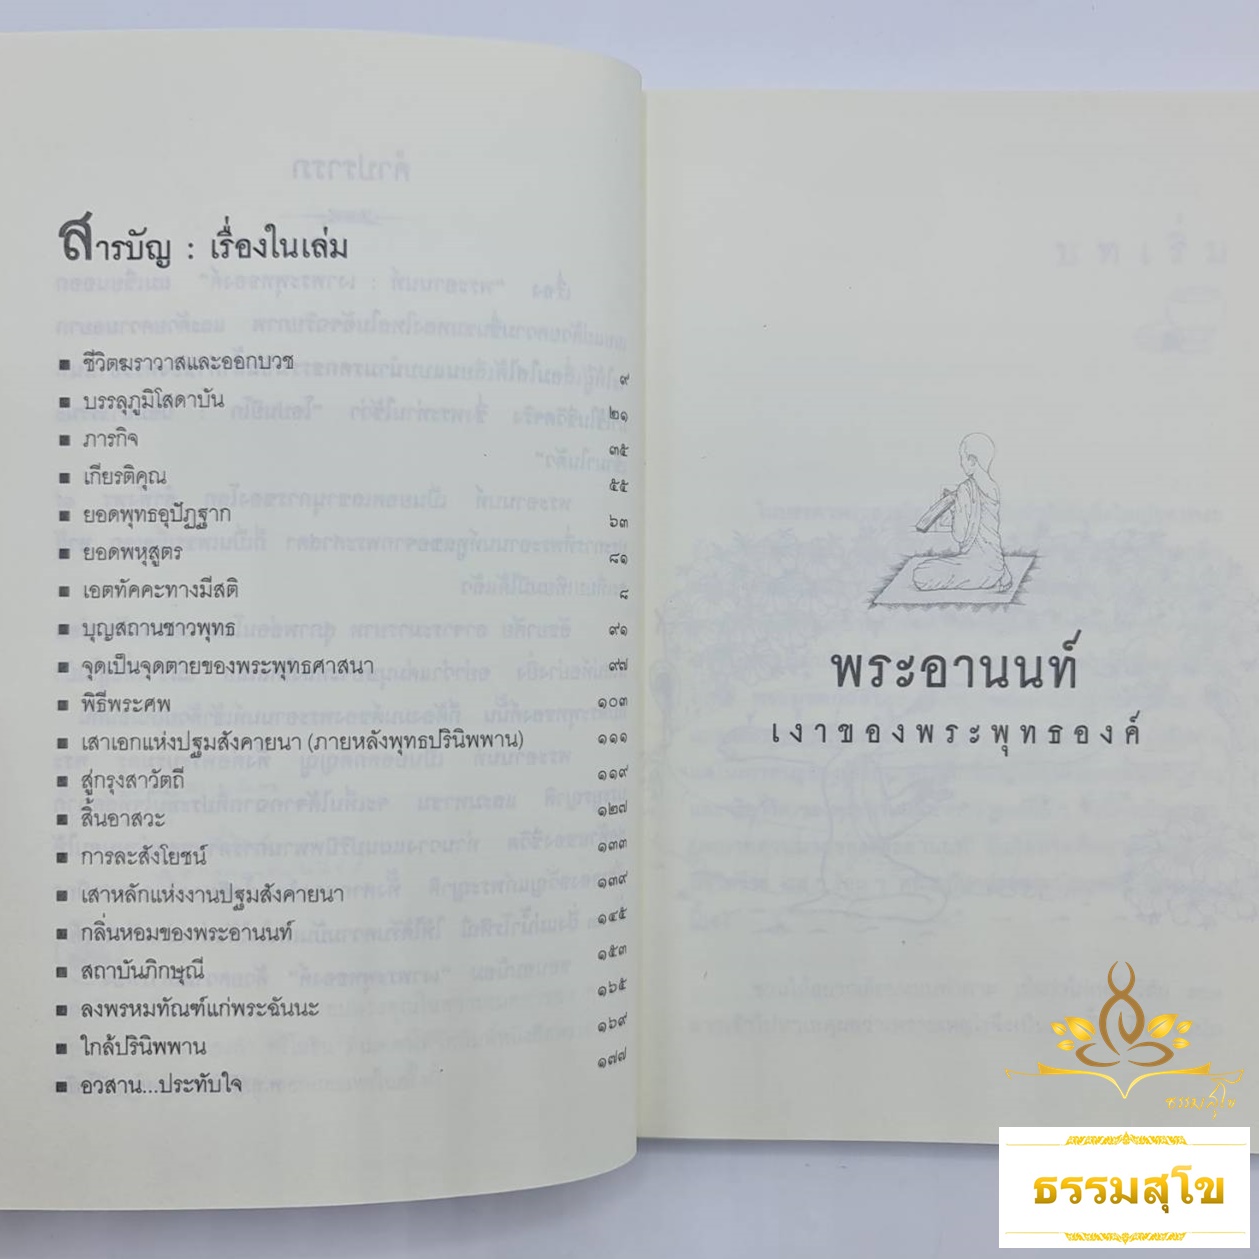 สารบัญ : เรื่องในเล่ม
■ ชีวิตฆราวาสและออกบวช ๙
■ บรรลุภูมิโสดาบัน ๒๑
■ ภารกิจ ๓๕
■ เกียรติคุณ ๕๕
■ ยอดพุทธอุปัฏฐาก ๖๓
■ ยอดพหุสูตร ๘๑
■ เอตทัคคะทางมีสติ ๘
■ บุญสถานชาวพุทธ ๙๑
■ จุดเป็นจุดตายของพระพุทธศาสนา ๙๗
■ พิธีพระศพ ๑๐๓
■ เสาเอกแห่งปฐมสังคายนา (ภายหลังพุทธปรินิพพาน) ๑๑๑
■ สู่กรุงสาวัตถี ๑๑๙
■ สิ้นอาสวะ ๑๒๗
■ การละสังโยชน์ ๑๓๓
■ เสาหลักแห่งงานปฐมสังคายนา ๑๓๙
■ กลิ่นหอมของพระอานนท์ ๑๔๕
■ สถาบันภิกษุณี ๑๕๓
■ ลงพรหมทัณฑ์แก่พระฉันนะ ๑๖๕
■ ใกล้ปรินิพพาน ๑๖๙
■ อวสาน...ประทับใจ ๑๗๗
พระอานนท์
เงาของพระพุทธองค์
ธรรมสุโข
ธรรมสุโข